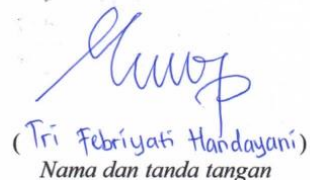 ( Tri Febriyati Handayani)
Nama dan tanda tangan